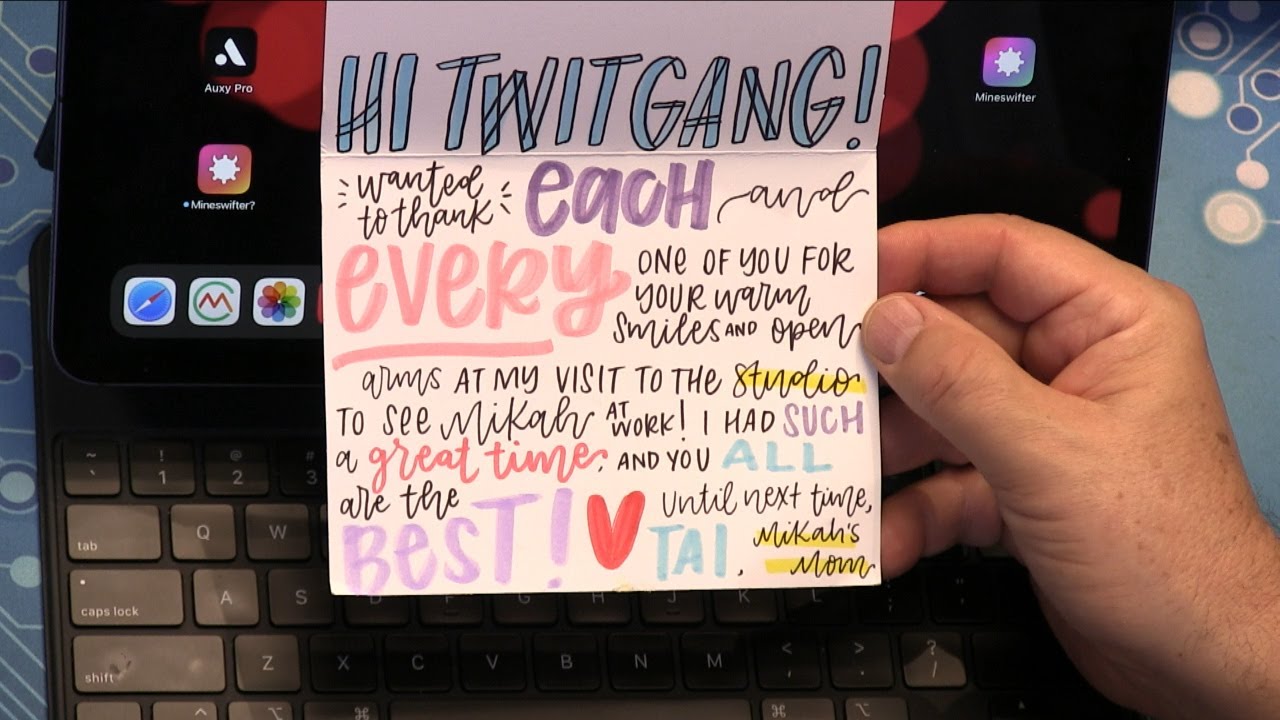 Auxy Pro
Mineswifter
Mineswifter?
HI TWITGANG!
wanted to thank each and
every ONE OF YOU FOR
YOUR warm
smiles AND open
arms AT MY VISIT TO THE studio
TO see Mikah AT WORK! I HAD SUCH
a great time, AND YOU ALL
are the
BEST! ♥ until next time,
TAI, Mikah's
Mom
~
`
!
1
@
2
#
3
tab
Q
W
caps lock
A
S
D
F
G
H
J
K
L
:
;
shift
Z
X
C
V
B
N
M
<
,
>
.
?
/
^
⌘
⌘
⌥